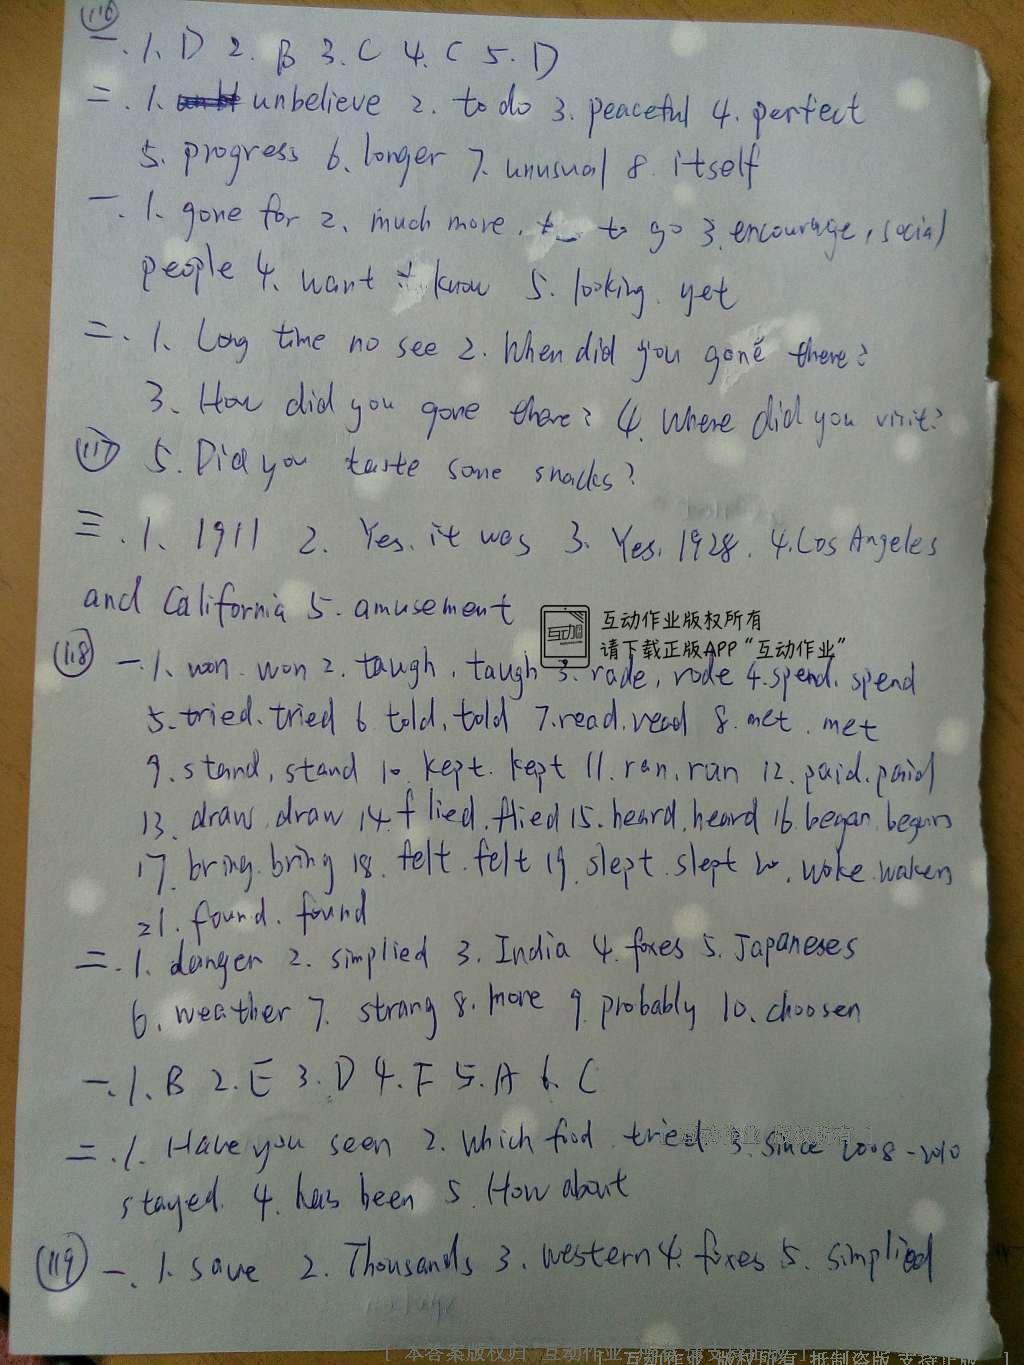 116
一.1. D 2. B 3. C 4. C 5. D
二.1. unbelieve 2. to do 3. peaceful 4. perfect
5. progress 6. longer 7. unusual 8. itself
一.1. gone for 2. much more, to go 3. encourage, social
people 4. want to know 5. looking, yet
二.1. Long time no see 2. When did you gone there?
3. How did you gone there? 4. Where did you visit?
117 5. Did you taste some snacks?
三.1. 1911 2. Yes, it was 3. Yes, 1928. 4. Los Angeles
and California 5. amusement
互动作业版权所有
请下载正版APP“互动作业”
互动
118 一.1. won. won 2. taugh, taugh 3. rade, rode 4. spend. spend
5. tried. tried 6 told, told 7. read. read 8. met. met
9. stand, stand 10. kept. kept 11. ran. run 12. paid. paid
13. draw. draw 14. flied. flied 15. heard. heard 16. began. begun
17. bring. bring 18. felt. felt 19. slept. slept 20. woke. waken
21. found. found
二.1. danger 2. simplied 3. India 4. foxes 5. Japaneses
6. weather 7. strang 8. more 9. probably 10. choosen
一.1. B 2. E 3. D 4. F 5. A 6. C
二.1. Have you seen 2. which food tried 3. since 2008-2010
stayed. 4. has been 5. How about
119 一.1. save 2. Thousands 3. western 4. foxes 5. simplied
[ 本答案版权归“互动作业”
互动作业 版权所有 抵制盗版 支持正版 ]